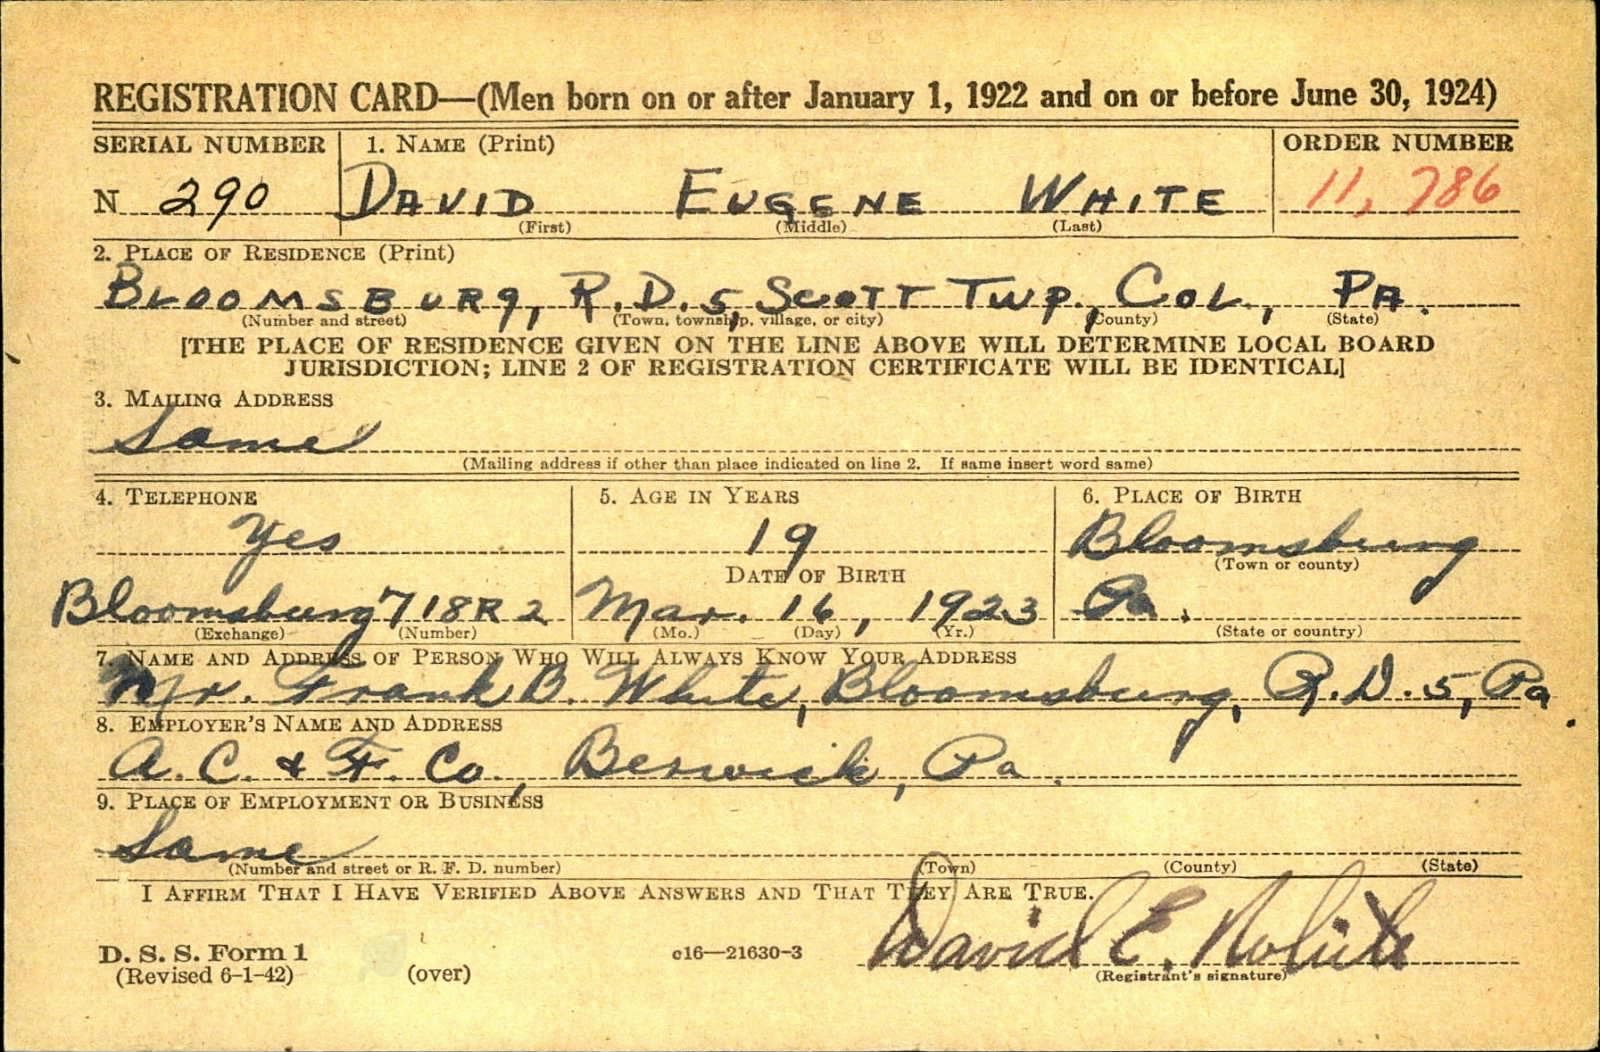 REGISTRATION CARD—(Men born on or after January 1, 1922 and on or before June 30, 1924)
SERIAL NUMBER 1. NAME (Print) ORDER NUMBER
N 290 DAVID EUGENE WHITE 11,786
(First) (Middle) (Last)
2. PLACE OF RESIDENCE (Print)
BLOOMSBURG, R.D. 5, SCOTT TWP., COL., PA.
(Number and street) (Town, township, village, or city) (County) (State)
[THE PLACE OF RESIDENCE GIVEN ON THE LINE ABOVE WILL DETERMINE LOCAL BOARD
JURISDICTION; LINE 2 OF REGISTRATION CERTIFICATE WILL BE IDENTICAL]
3. MAILING ADDRESS
Same
(Mailing address if other than place indicated on line 2. If same insert word same)
4. TELEPHONE 5. AGE IN YEARS 6. PLACE OF BIRTH
Yes 19 Bloomsburg
DATE OF BIRTH (Town or county)
Bloomsburg 718R2 Mar. 16, 1923 Pa.
(Exchange) (Number) (Mo.) (Day) (Yr.) (State or country)
7. NAME AND ADDRESS OF PERSON WHO WILL ALWAYS KNOW YOUR ADDRESS
Mr. Frank B. White, Bloomsburg, R.D. 5, Pa.
8. EMPLOYER'S NAME AND ADDRESS
A. C. & F. Co., Berwick, Pa.
9. PLACE OF EMPLOYMENT OR BUSINESS
Same
(Number and street or R. F. D. number) (Town) (County) (State)
I AFFIRM THAT I HAVE VERIFIED ABOVE ANSWERS AND THAT THEY ARE TRUE.
D. S. S. Form 1 c16—21630-3 David E. White
(Revised 6-1-42) (over) (Registrant's signature)